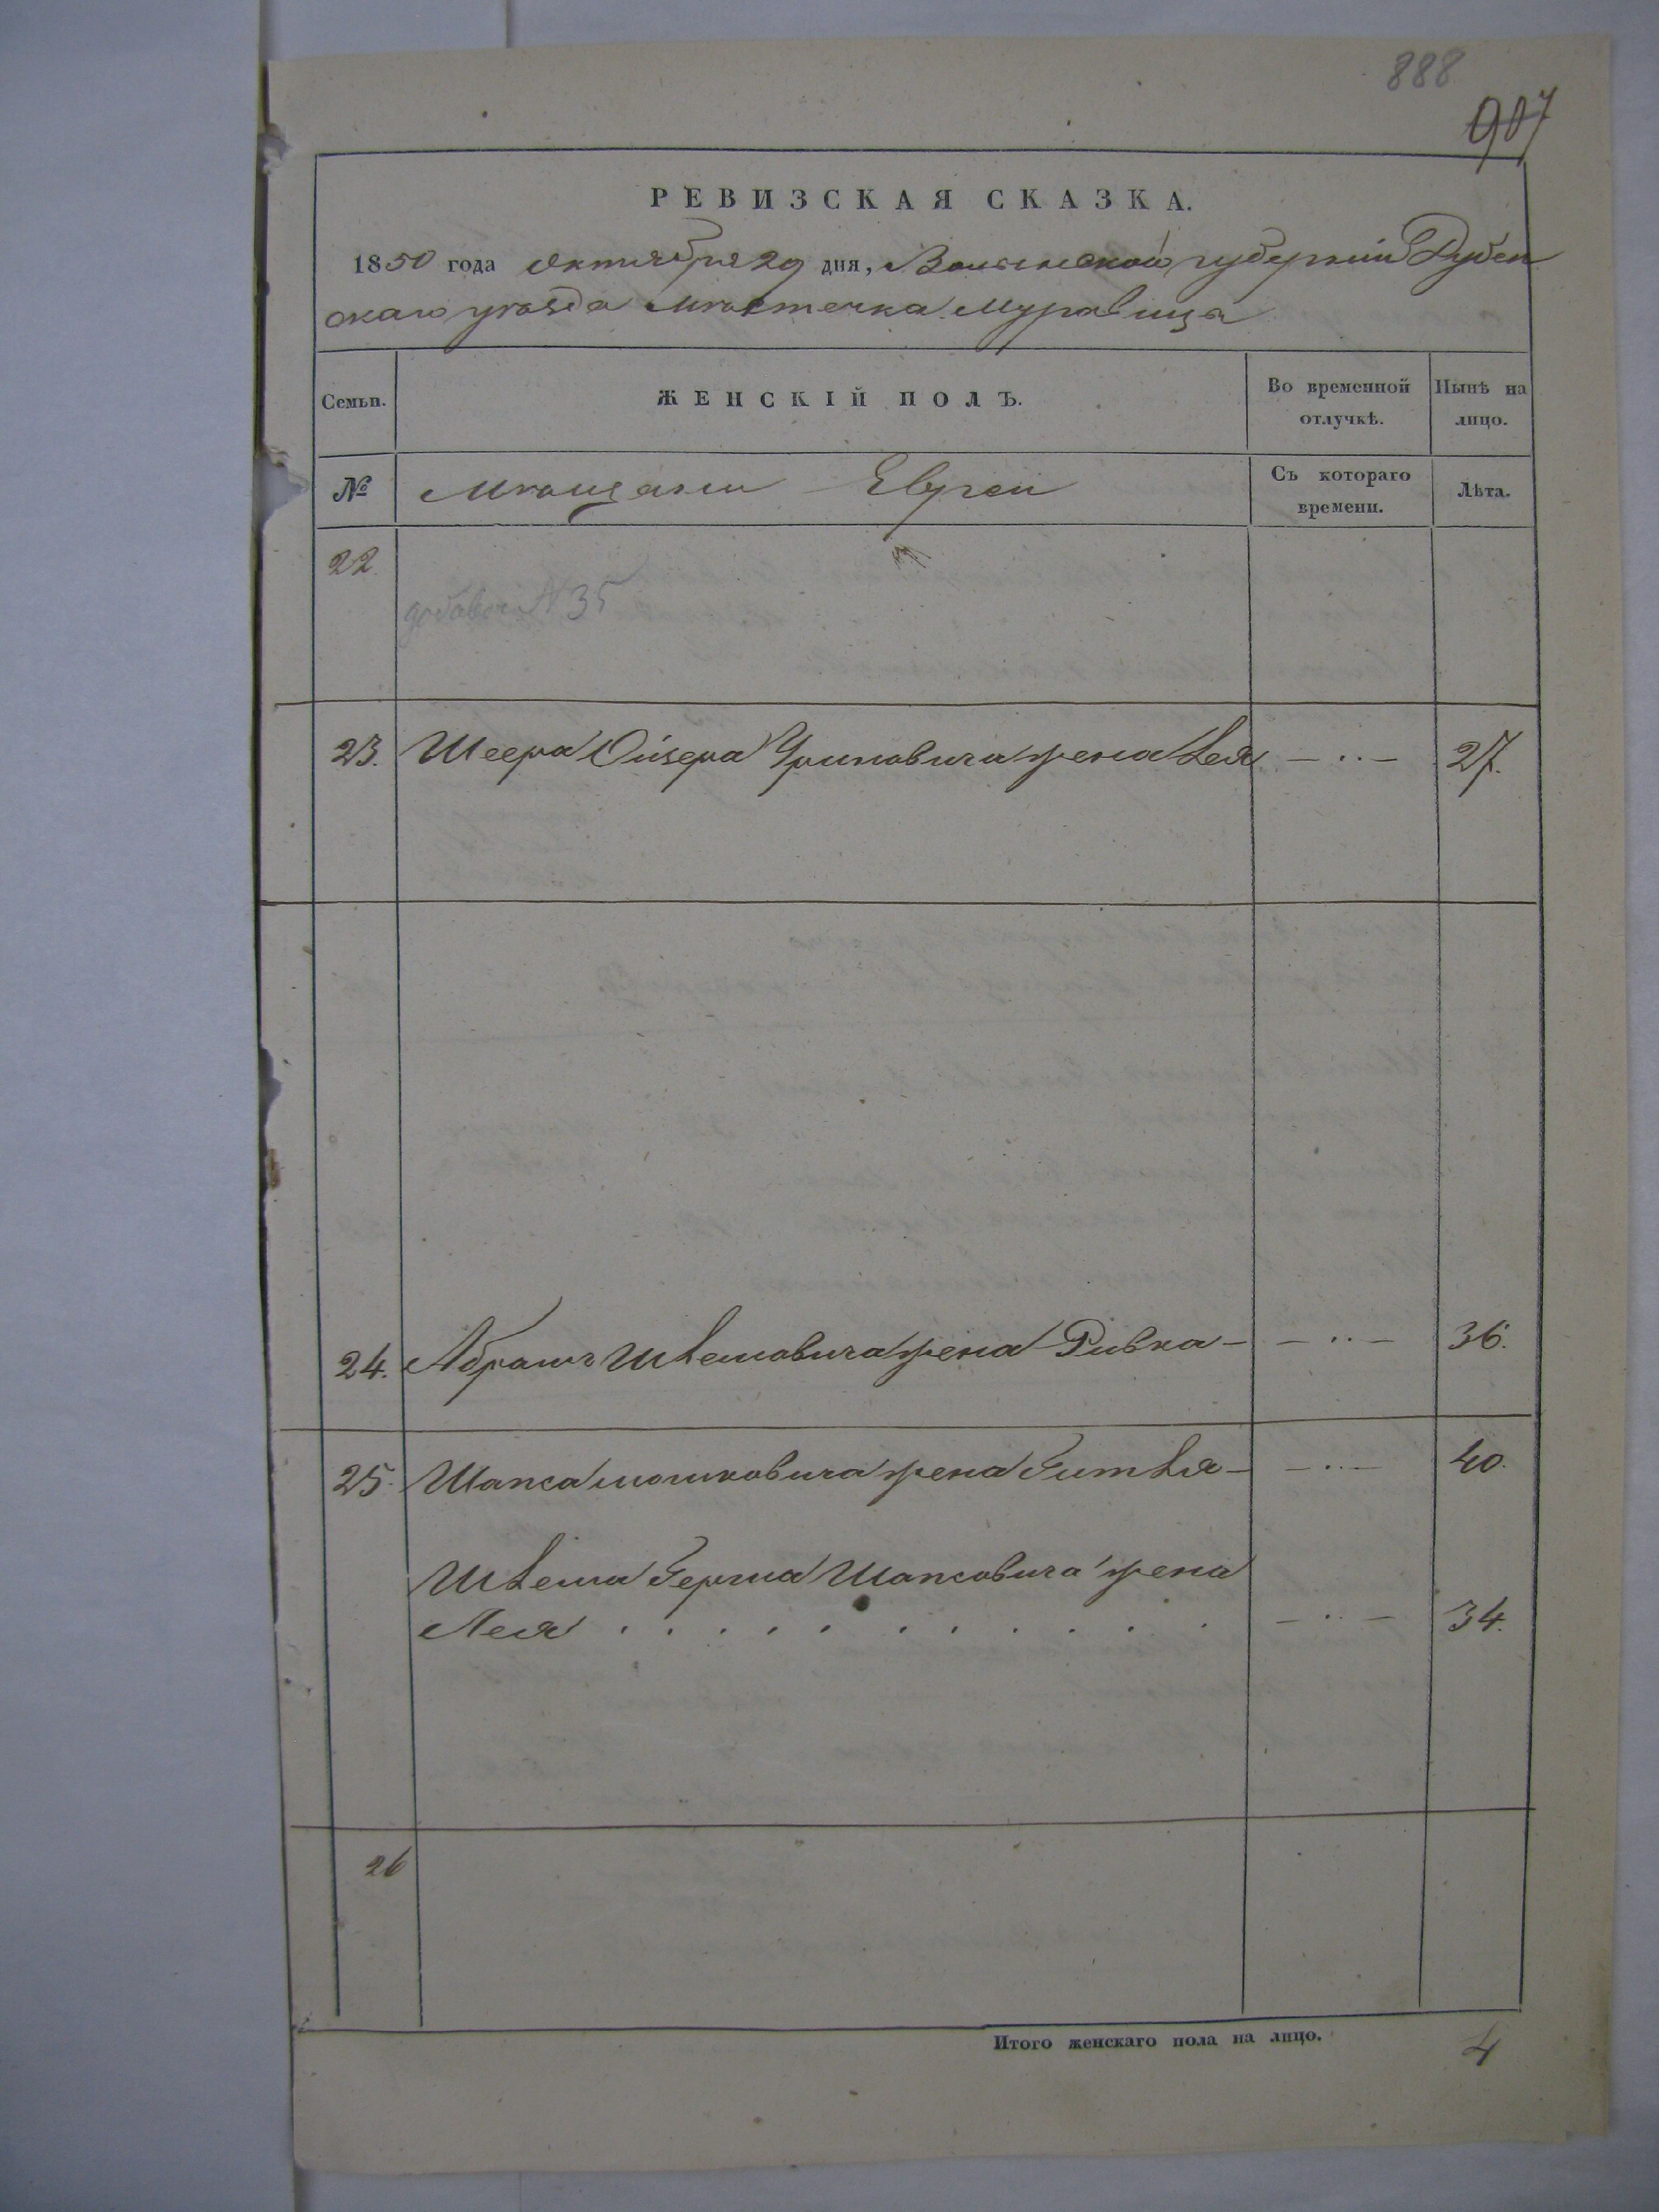 888
907
РЕВИЗСКАЯ СКАЗКА.
1850 года Октября 29 дня, Волынской губерніи Дубен
скаго уѣзда Мѣстечка Муравица
Семьи.
ЖЕНСКІЙ ПОЛЪ.
Во временной
отлучкѣ.
Нынѣ на
лицо.
№
Мѣщани Евреи
Съ котораго
времени.
Лѣта.
22
№ 35
23. жена Лея — ·· — 27.
24. Абрамъ жена Ривка — — ·· — 36.
25. Шапса Мошковича жена — — ·· — 40.
Герша Шапсовича жена
Лея . . . . . . . . . . . — ·· — 34.
26
Итого женскаго пола на лицо. 4